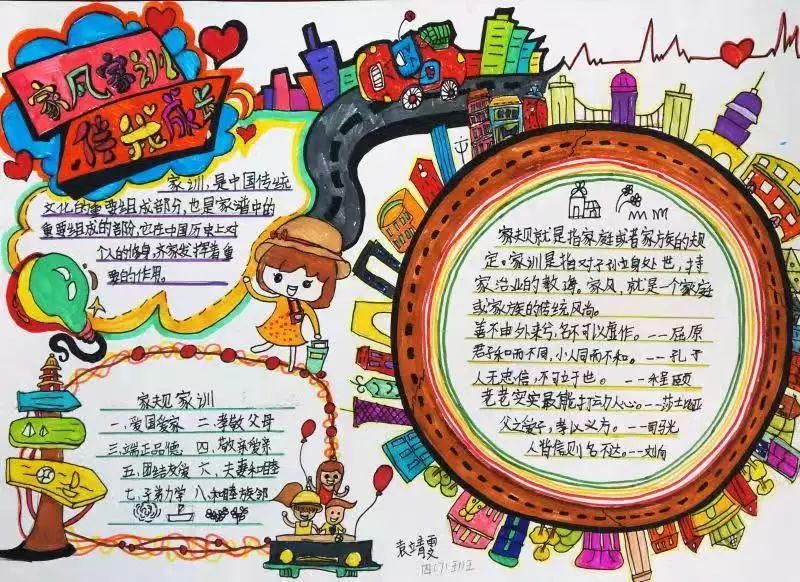 家风家训
伴我成长
家训,是中国传统
文化的重要组成部分,也是家谱中的
重要组成的部分,它在中国历史上对
个人的修身、齐家发挥着重
要的作用。
家规家训
一、爱国爱家 二、孝敬父母
三、端正品德 四、敬亲爱亲
五、团结友爱 六、夫妻和睦
七、子弟力学 八、和睦族邻
家规就是指家庭或者家族的规
定。家训是指对子孙立身处世,持
家治业的教诲。家风,就是一个家庭
或家族的传统风尚。
善不由外来兮,名不可以虚作。---屈原
君子和而不同,小人同而不和。---孔子
人无忠信,不可立于世。---程颐
老老实实最能打动人心。---莎士比亚
父之爱子,教以义方。---司马光
人背信则名不达。---刘向
四(7)班